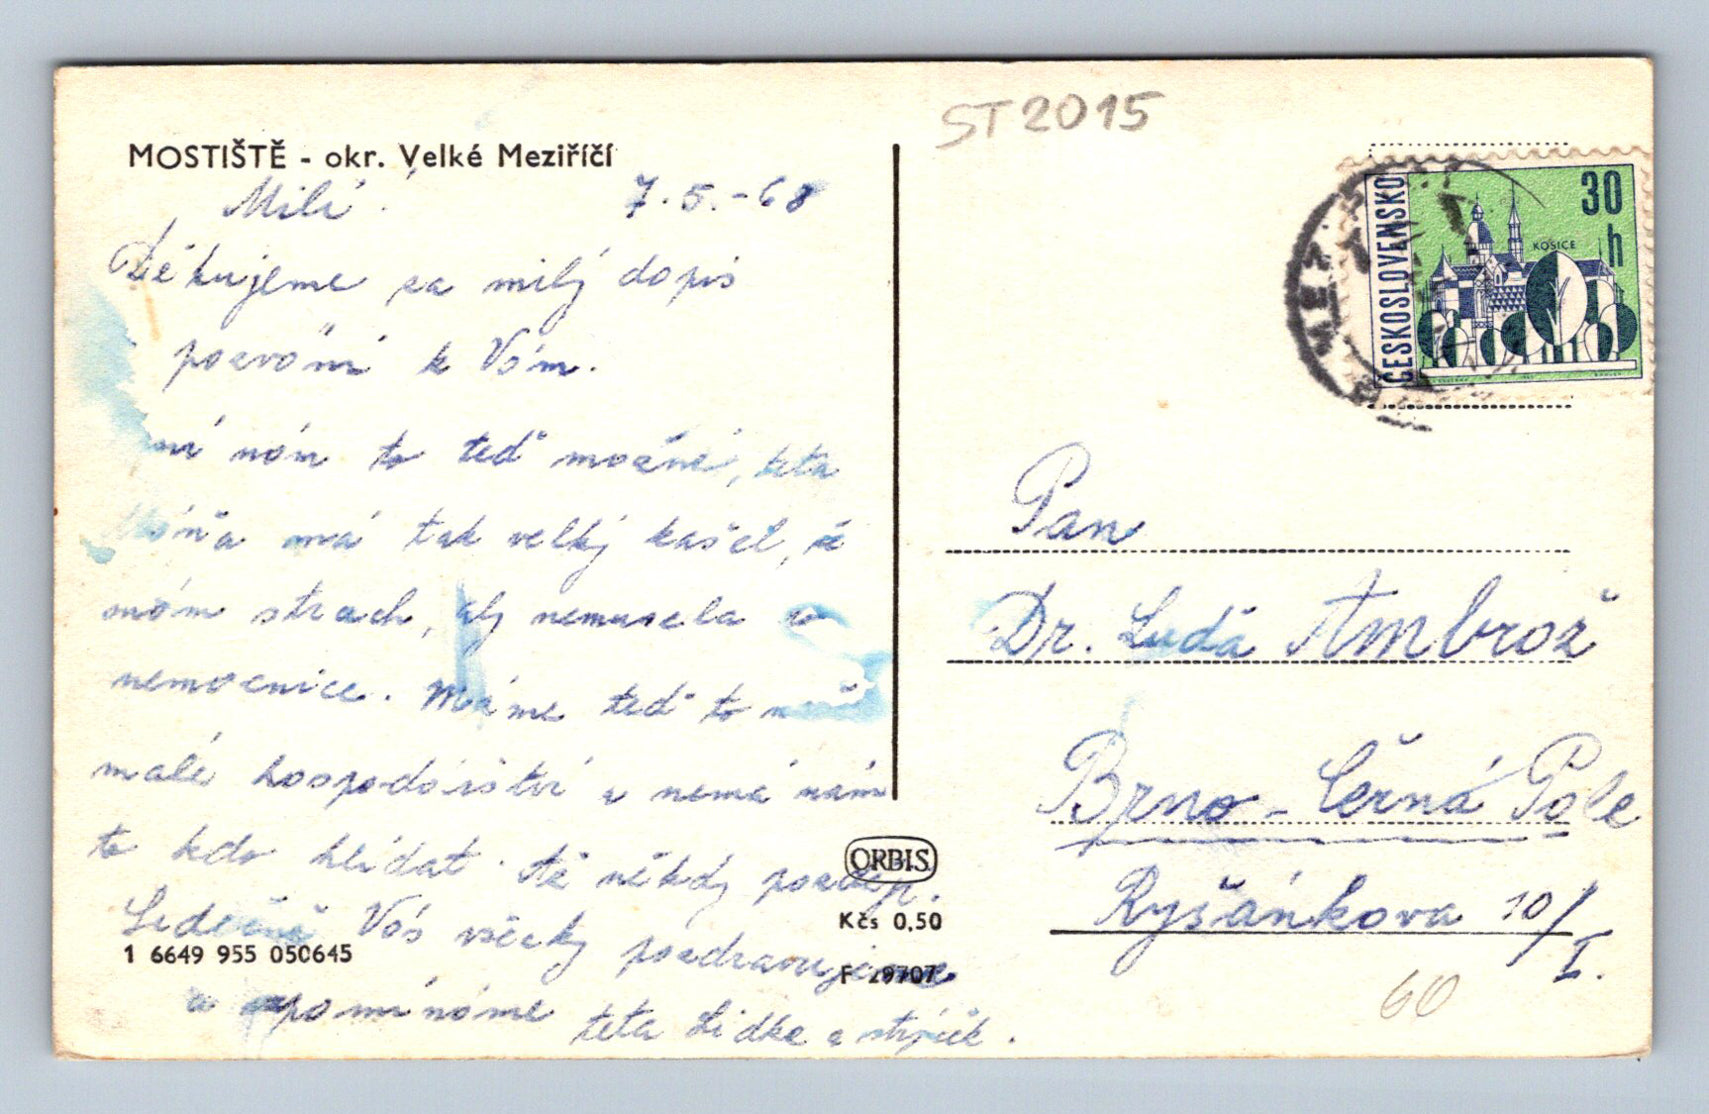 ST 2015
MOSTIŠTĚ - okr. Velké Meziříčí
Milí. 7.5.-68
Děkujeme za milý dopis
pozvání k Vám.
ní nám to teď možné, teta
Máňa má tak velký kašel, že
mám strach, aby nemusela
nemocnice. Máme teď to
malé hospodářství a nemá nám
to kdo hlídat. Až někdy
Srdečně Vás všecky pozdravujeme
a vzpomínáme teta Lidka a strýček.
1 6649 955 050645
ORBIS
Kčs 0,50
F 29707
ČESKOSLOVENSKO
30 h
KOŠICE
Pan
Dr. Luďa Ambrož
Brno - Černá Pole
Ryšánkova 10/I.
60